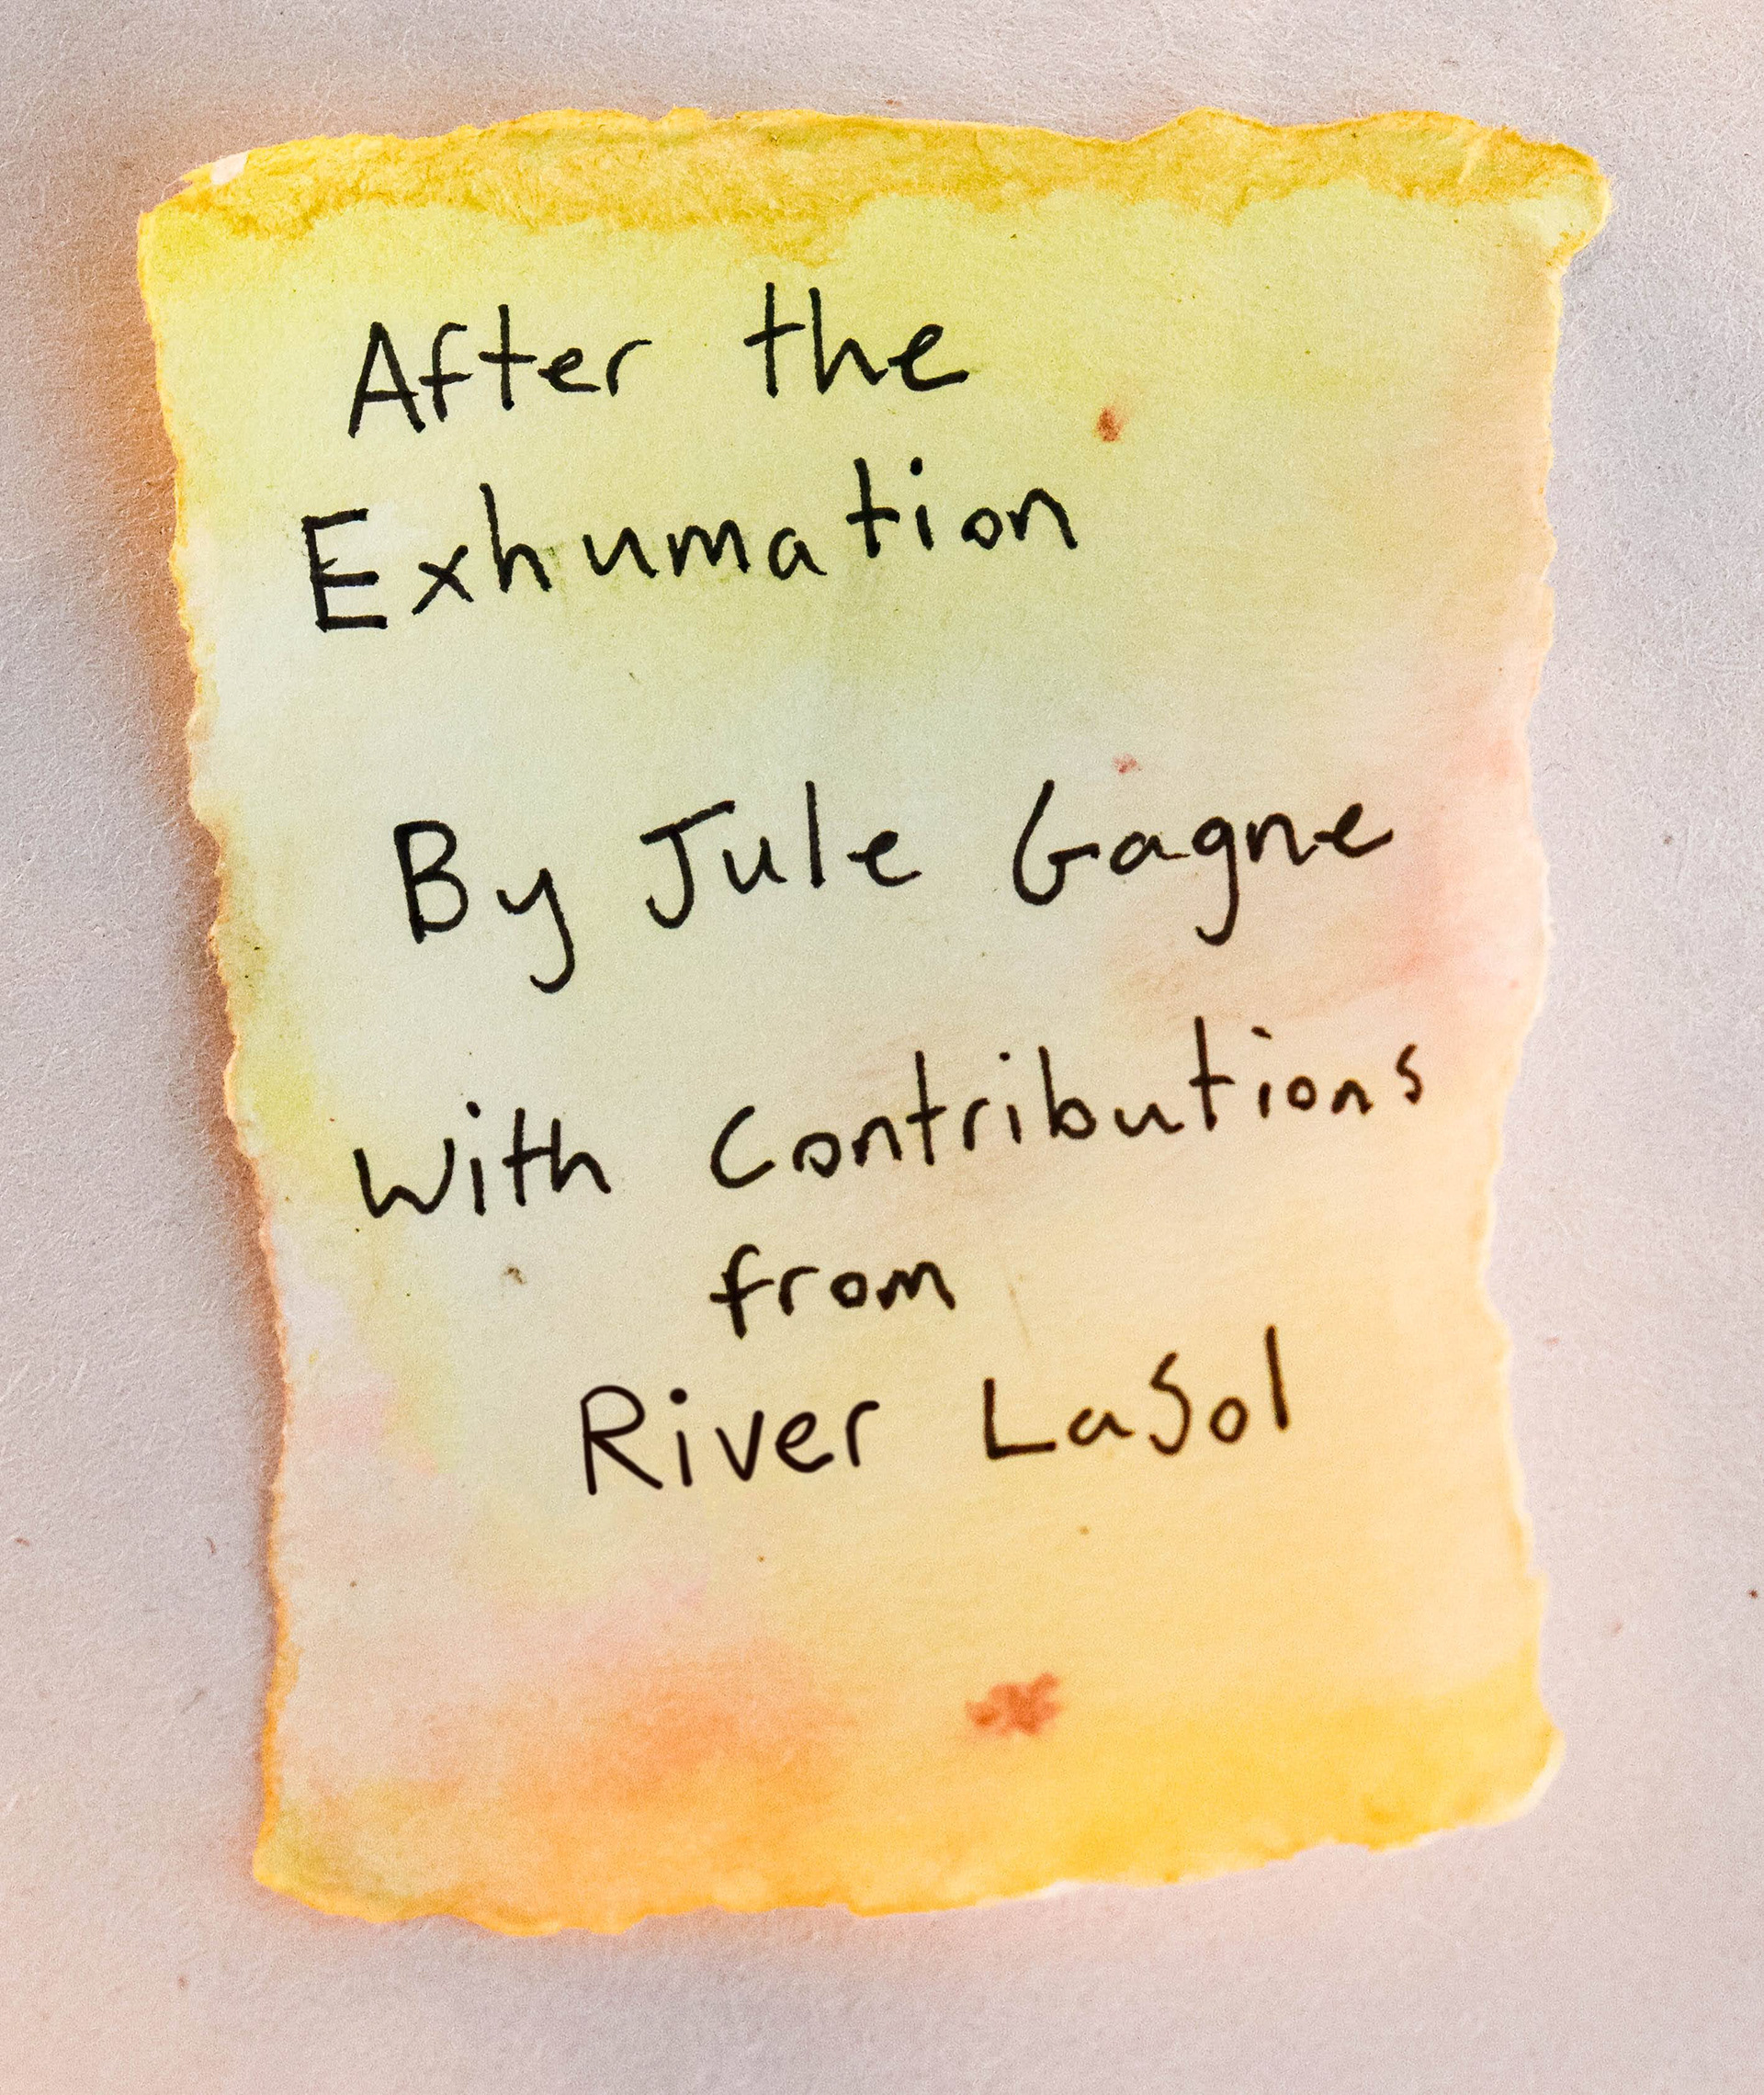 After the
Exhumation
By Jule Gagne
With Contributions
from
River LaSol